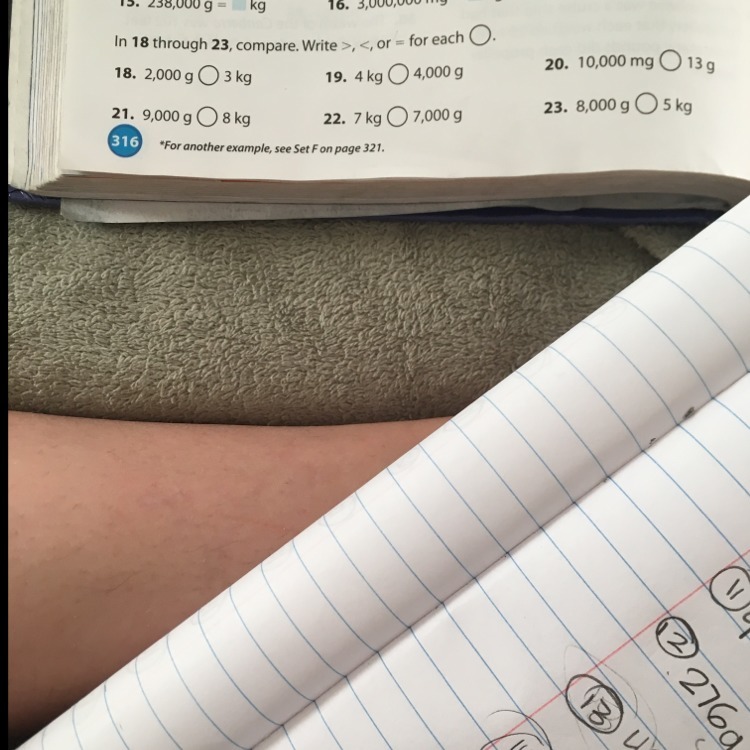 15. 238,000 g = kg 16. 3,000,000 mg
In 18 through 23, compare. Write >, <, or = for each ○.
18. 2,000 g ○ 3 kg 19. 4 kg ○ 4,000 g 20. 10,000 mg ○ 13 g
21. 9,000 g ○ 8 kg 22. 7 kg ○ 7,000 g 23. 8,000 g ○ 5 kg
316 *For another example, see Set F on page 321.
11
12 276
13